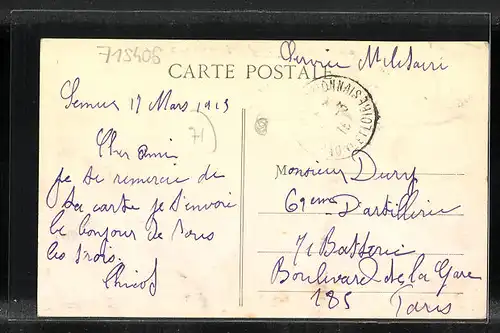 715406
Service Militaire
CARTE POSTALE
Semur 17 Mars 1913
71
Cher ami
je te remercie de
ta carte je t'envoie
le bonjour de tous
les trois.
Monsieur Dury
61eme D'artillerie
7e Batterie
Boulevard de la Gare
185 Paris